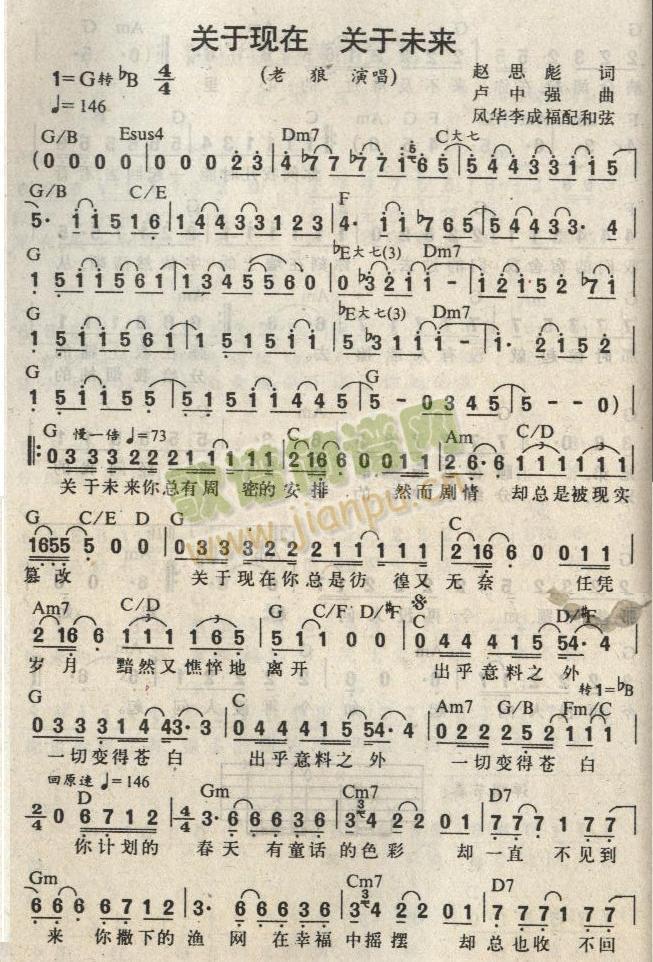 关于现在 关于未来
1=G转♭B 4/4 (老狼 演唱) 赵思彪 词
♩=146 卢中强 曲
风华李成福配和弦
G/B Esus4 Dm7 C大七
(0 0 0 0 | 0 0 0 2 3 | 4 ♭7 7 ♭7 7 i 6 5 | 5 4 4 3 3 1 1 5
G/B C/E F
5· i i 5 1 6 | 1 4 4 3 3 1 2 3 | 4· i i ♭7 6 5 | 5 5 4 4 3 3· 4
G ♭E大七(3) Dm7
1 5 i i 5 6 1 | 1 3 4 5 5 6 0 | 0 ♭3 2 1 i - | i 2 1 5 2 ♭7 i
G ♭E大七(3) Dm7
1 5 i i 5 6 i | 1 5 1 5 i i | 5 ♭3 1 1 i - | i· 2 1 5 2
G G
1 5 i i 5 i 5 | 5 1 5 i i 4 4 5 | 5 - 0 3 4 5 | 5 - - 0)
G 慢一倍 ♩=73 C Am C/D
0 3 3 3 2 2 2 1 1 1 1 1 | 2 1 6 6 0 0 1 1 | 2 6· 6 1 1 1 1 1 1
关于未来你总有周 密的安排 然而剧情 却总是被现实
G C/E D G C
1655 5 0 0 | 0 3 3 3 2 2 2 1 1 1 1 1 | 2 16 6 0 0 1 1
篡改 关于现在你总是彷 徨又无奈 任凭
Am7 C/D G C/F D/♯F C D/♯F
2 16 6 1 1 1 1 6 5 | 5 1 1 0 0 | 0 4 4 4 1 5 54· 4
岁月 黯然又憔悴地 离开 出乎意料之外
转1=♭B
G C Am7 G/B Fm/C
0 3 3 3 3 1 4 43· 3 | 0 4 4 4 4 1 5 54· 4 | 0 2 2 2 2 5 2 1 1 1
一切变得苍白 出乎意料之外 一切变得苍 白
回原速 ♩=146
D Gm Cm7 D7
2/4 0 6 7 1 2 | 4/4 3· 6 6 6 6 6 | 3 4 2 2 0 1 | 7 7 7 1 7 7
你计划的 春天 有童话的色彩 却一直 不见到
Gm Cm7 D7
6 6 6 6 7 1 2 | 3· 6 6 6 3 6 | 3 4 2 2 0 1 | 7 7 7 7 1 7
来 你撒下的渔 网 在幸福 中摇摆 却总也收 不回
歌谱简谱网
www.jianpu.cn